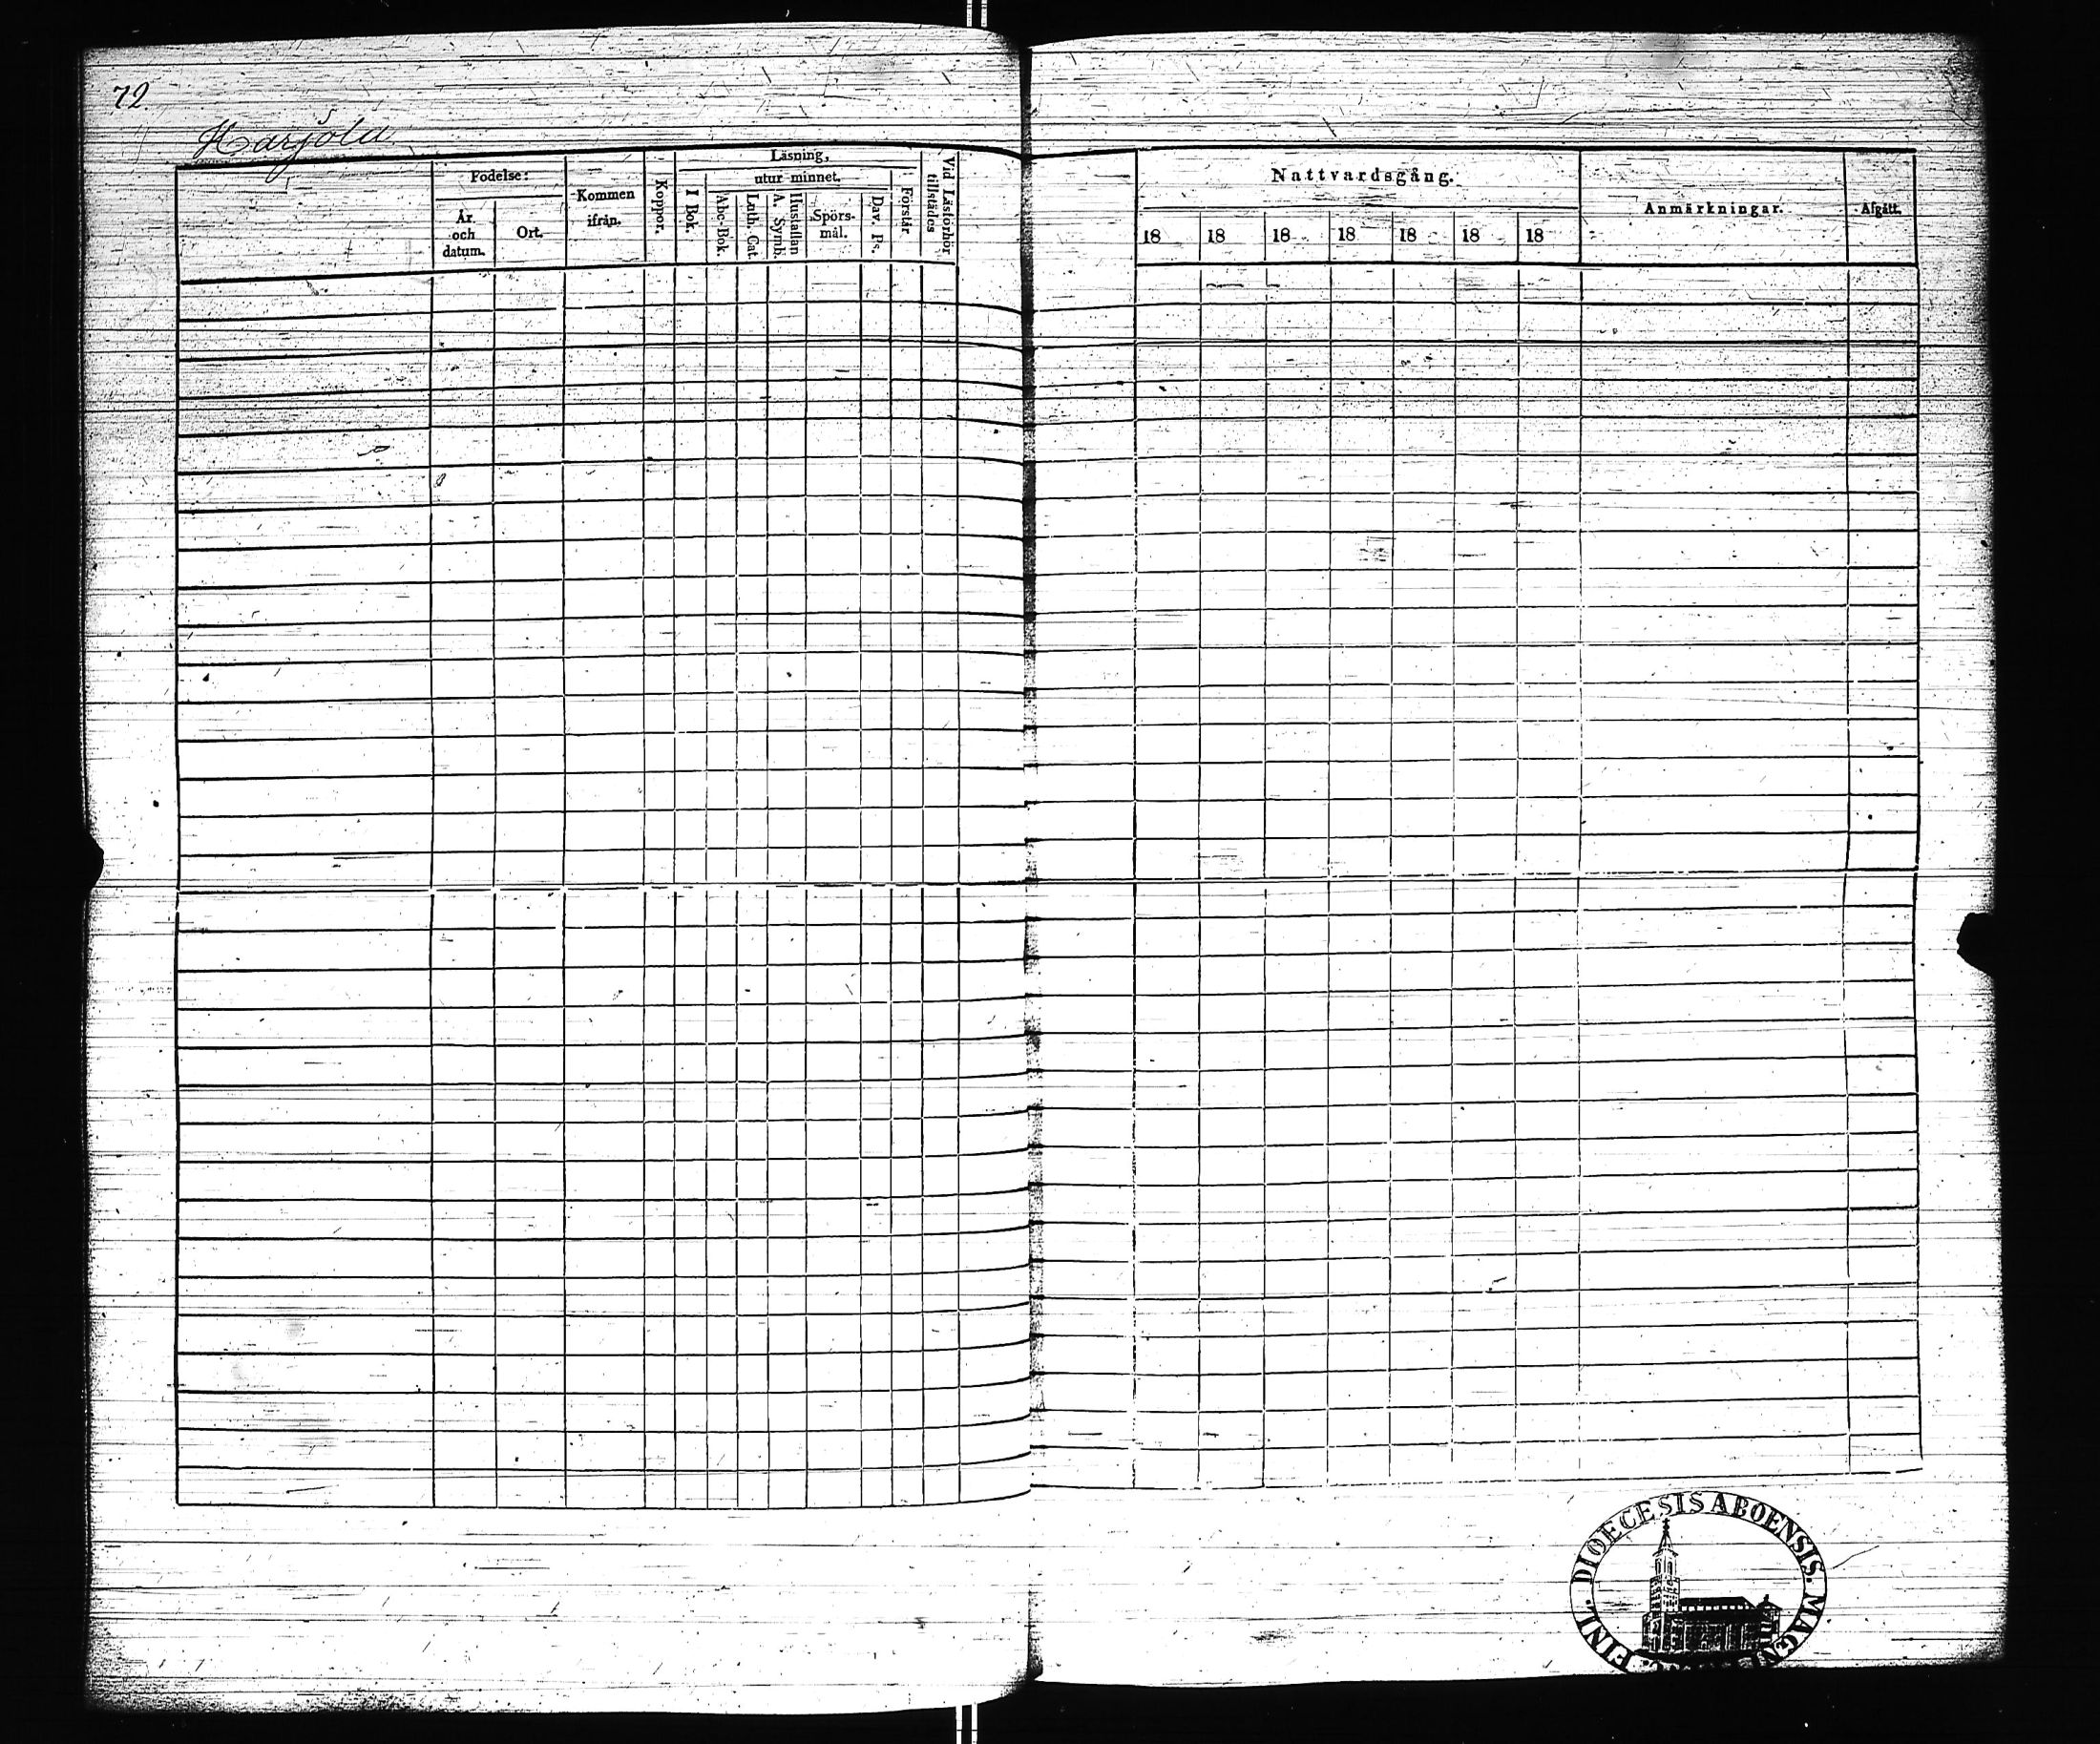 72
Harjola
Födelse:
År och datum.
Ort.
Kommen ifrån.
Koppor.
Läsning,
I Bok.
utur minnet.
Abc-Bok.
Luth. Cat.
Hustaflan A. Symb.
Spörsmål.
Dav. Ps.
Förstår
Vid Läsförhör tillstädes
Nattvardsgång.
18 18 18 18 18 18 18
Anmärkningar.
Afgått.
DIOECESIS ABOENSIS. MAGN
FINL.